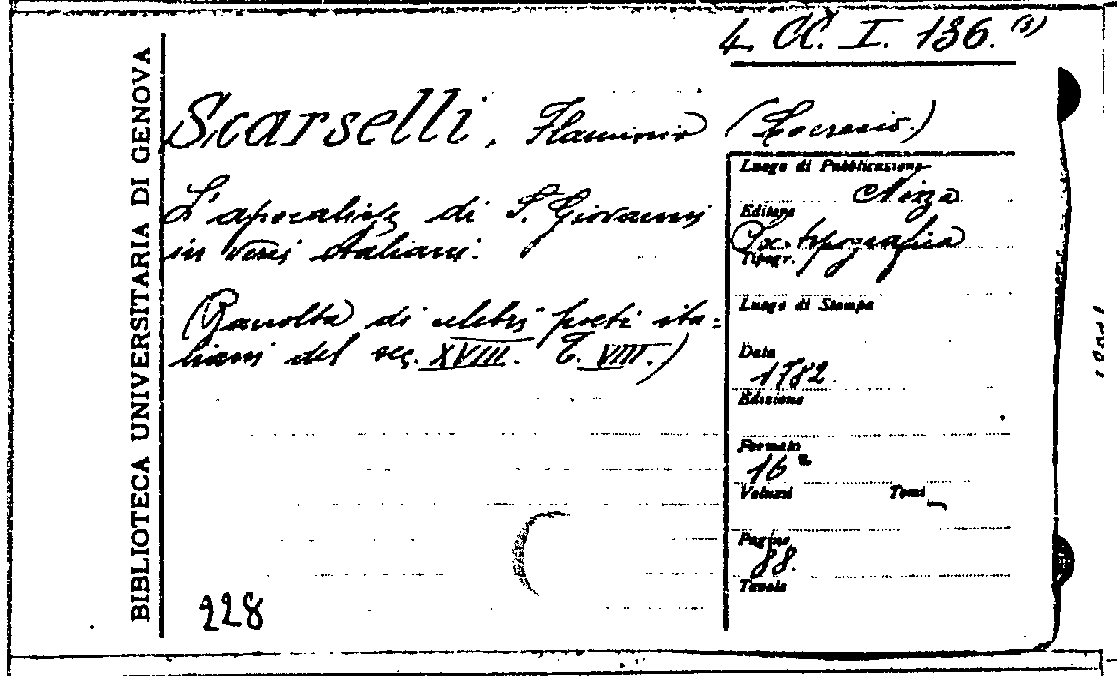 4. CC. I. 136. (3)
BIBLIOTECA UNIVERSITARIA DI GENOVA
Scarselli, Flaminio
L'apocalisse di S. Giovanni
in versi italiani.
(Raccolta di celebri poeti ita=
liani del sec. XVIII. T. VIII.)
228
Luogo di Pubblicazione
Nizza
Editore
Soc. tipografica
Tipogr.
Luogo di Stampa
Data
1782
Edizione
Formato
16°
Volumi Tomi
Pagine
88.
Tavole